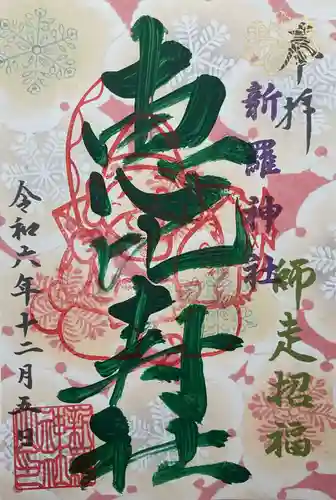 奉拝
新羅神社
師走招福
恵比寿社
令和六年十二月五日